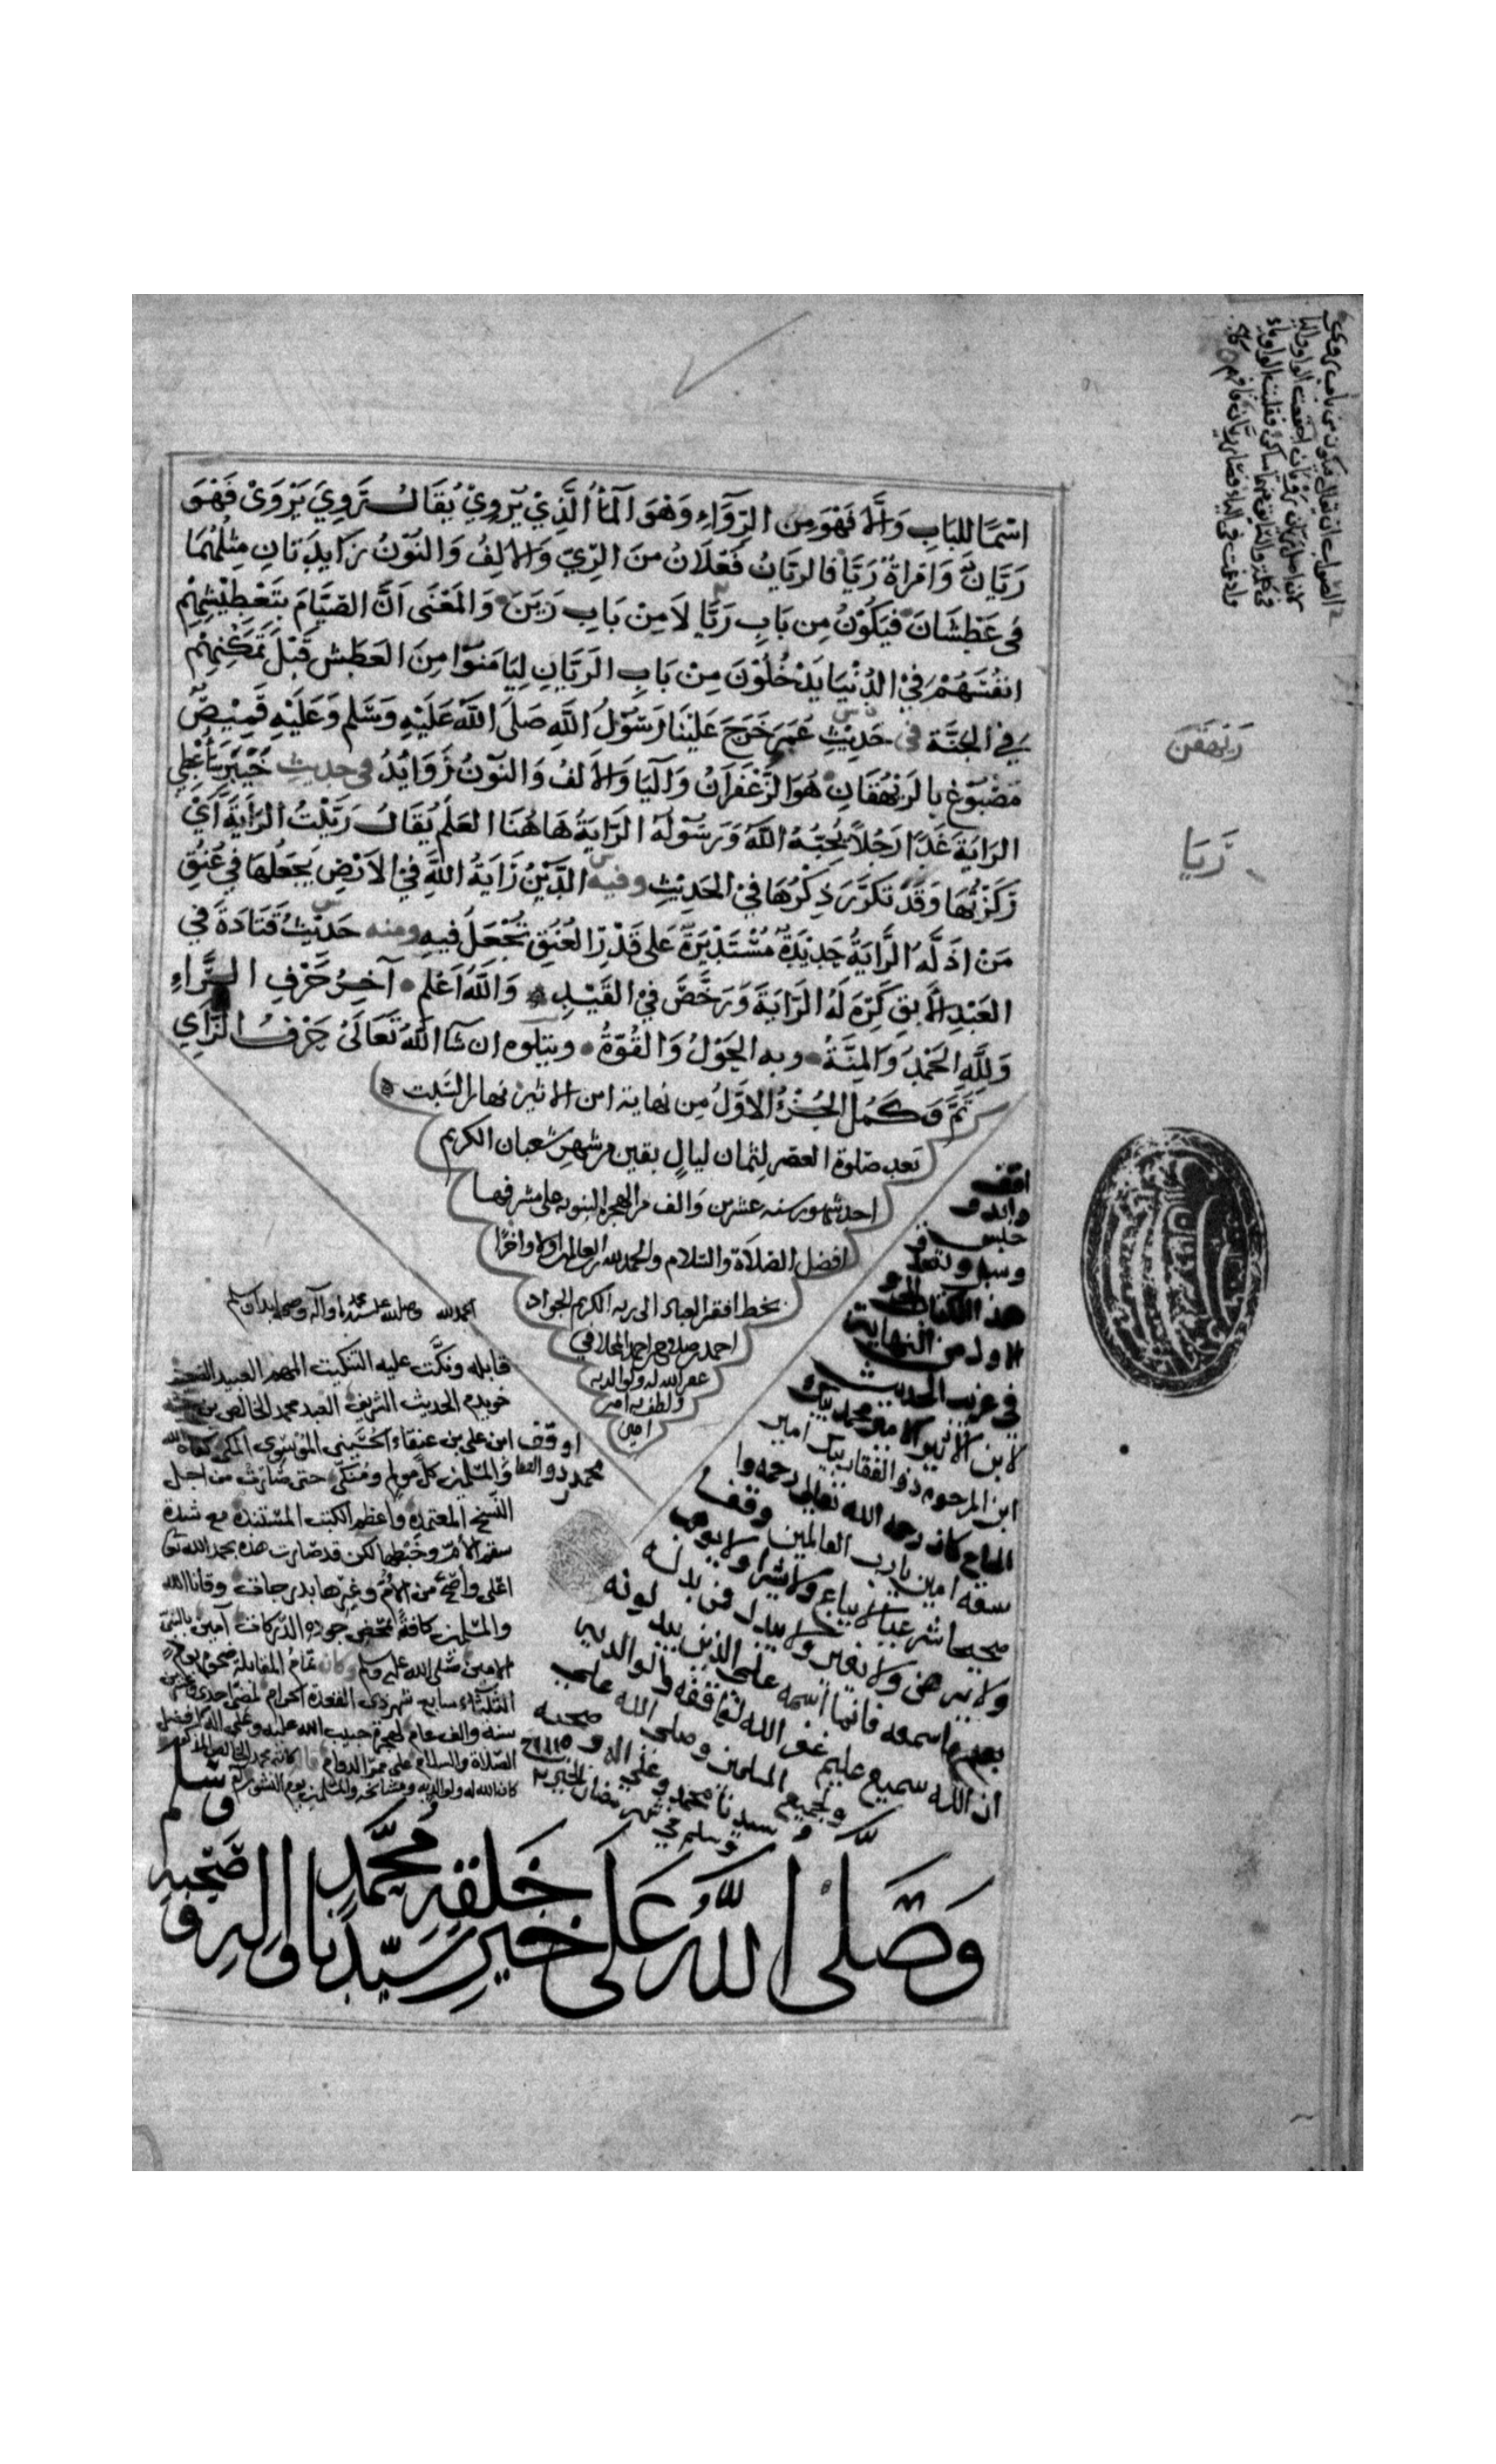 اسْمًا للبَابِ وَالَّا فَهُوَ مِن الرِّوَاءِ وَهُوَ المَاءُ الَّذِيْ يُرْوِيْ يُقَالُ رَوِيَ يَرْوَىْ فَهْوَ
رَيَّانٌ وَامْرَاةٌ رَيَّا فَالرَيَّانُ فَعْلَانُ مِنَ الرِّيّ وَالالِفُ وَالنُّونُ زَايِدَتَانِ مِثْلُهُمَا
فى عَطْشَانَ فَيَكُوْنُ مِن بَابِ رَيَّا لَا مِنْ بَابِ رَيَنَ وَالمَعْنَى اَنَّ الصِّيَامَ بِتَعْطِيْشِهِمْ
انفُسَهُمْ فِيْ الدُنْيَا يَدْخُلُوْنَ مِنْ بَابِ الرَيَّانِ لِيَامَنوْا مِنَ العَطَشِ قَبْلَ تَمَكُّنِهِمْ
فِي الجَنَّة فى حَدِيْثِ عُمَرَ خَرَجَ عَلَيْنَا رَسُوْلُ اللَّهِ صَلَى اللَّهُ عَلَيْهِ وَسَلم وَعَلَيْهِ قَمِيْصٌ
مَصْبُوْغٌ بِالرَيْهُقَانِ هُوَ الزَّعْفَرَانُ وَاليَا وَالالفُ وَالنُوْنُ زَوَايدُ فى حديث خَيْبَرَ سَأُعْطِي
الرَايَةَ غَدًا رَجُلاً يُحِبُّهُ اللَّهُ وَرَسُوْلُهُ الرَّايَةُ هَاهُنَا العَلَمُ يُقَالُ رَيَّيْتُ الرَايَةَ اَيْ
رَكَزْتُهَا وَقَدْ تَكَرَّرَ ذِكْرُهَا فِيْ الحَدِيْثِ وفيه الدَّيْنُ رَايَةُ اللَّهِ فِيْ الاَرْضِ يَجْعَلُهَا فِيْ عُنُقِ
مَنْ اذَلَّهُ الرَّايَةُ حَدِيْدَةٌ مُسْتَدِيْرَةٌ عَلى قَدْرِ العُنُقِ تُجْعَلُ فِيهِ ومنه حَدِيْثُ قَتَادَةَ فِي
العَبْدِ الآبِقِ كَرِهَ لَهُ الرَّايَةَ وَرَخَّصَ فِيْ القَيْدِ وَاللَّهُ اَعْلم آخِرُ حَرْفِ الرَّاءِ
وَلِلَّهِ الحَمْدُ وَالمِنَّةُ وبه الحَوْلُ وَالقُوَّةُ ويتلوه ان شآ اللَّهُ تَعَالَىْ حَرْفُ الزَّاي
تَمَّ وَكَمُلَ الجُزْءُ الاَوَّلُ مِن نهاية ابن الاثير نهار السَبت
بعد صَلوة العصر لثمان ليالٍ بقين من شهر شعبان الكريم
احد شهور سنه عشرين وَالف من الهجره النبويه على مشرفها
افضل الصَلاة والسَلام والحمد لله رب العالمين اولا واخرًا
بخط افقر العباد الى ربه الكريم الجواد
احمد بن صلاح بن احمد
غفر الله له ولوالديه
ولطف به امين
امين
الحمد لله وصلى الله على سيدنا محمد وآله وصحبه ابدا وسلم
قابله ونكَّت عليه التنكيت المهم العبيد
خويدم الحديث الشريف العبد محمد الخالص بن
ابن على بن عنقاء الحُسَيني المُوسَوي المكى كفاه الله
وَالمسْلمين كلَّ مولم ومُنَكّى حتى صَارَت من اجل
النُسَخ المعتمدة واعظم الكتب المسْتندة مع شدة
سقم الأمّ وخبْطها لكن قد صَارت هذه بحمد الله تعَ
اعلى واصَحّ من الأمّ وغيرها بدرجات وقانا الله
والمسْلمين كافة
الامين صَلى الله عليه وسلم وكان تمام المقابلة
الثلثاء سابع شهر ذى القعدة الحرام
سنه والف عام لهجرة حبيب الله عليه وعلى آله افضل
الصَلاة والسلام على ممر الدوام
كان الله له ولوالديه ومشائخه وللمسلمين
اوقف
محمد ذو الفقا
اوقف
وابد و
حبس و
وسبل وتصدق
هذا الكتاب الجزو
الاول من النهاية
في غريب الحديث
لابن الاثير الامير محمد بيك
ابن المرحوم ذو الفقار بيك امير
الحاج كان رحمه الله تعالى
امين يا رب العالمين وقفا
صحيحا شرعيا لا يباع ولا يشرا ولا يوهب
ولا يرهن ولا يغير ولا يبدل فمن بدله
بعد ما سمعه فانما اثمه على الذين يبدلونه
ان الله سميع عليم غفر الله لواقفه ولوالديه
ولجميع المسلمين وصلى الله على
سيدنا محمد وعلى اله وصحبه
وسلم في شهر رمضان
وَصَلَّى اللَّهُ عَلَى خَيرِ خَلقِهِ سَيّدنَا مُحَمَّدٍ وَالِهِ وَصَحْبِهِ وسَلم
رَيْهَقَنَ
رَيَا